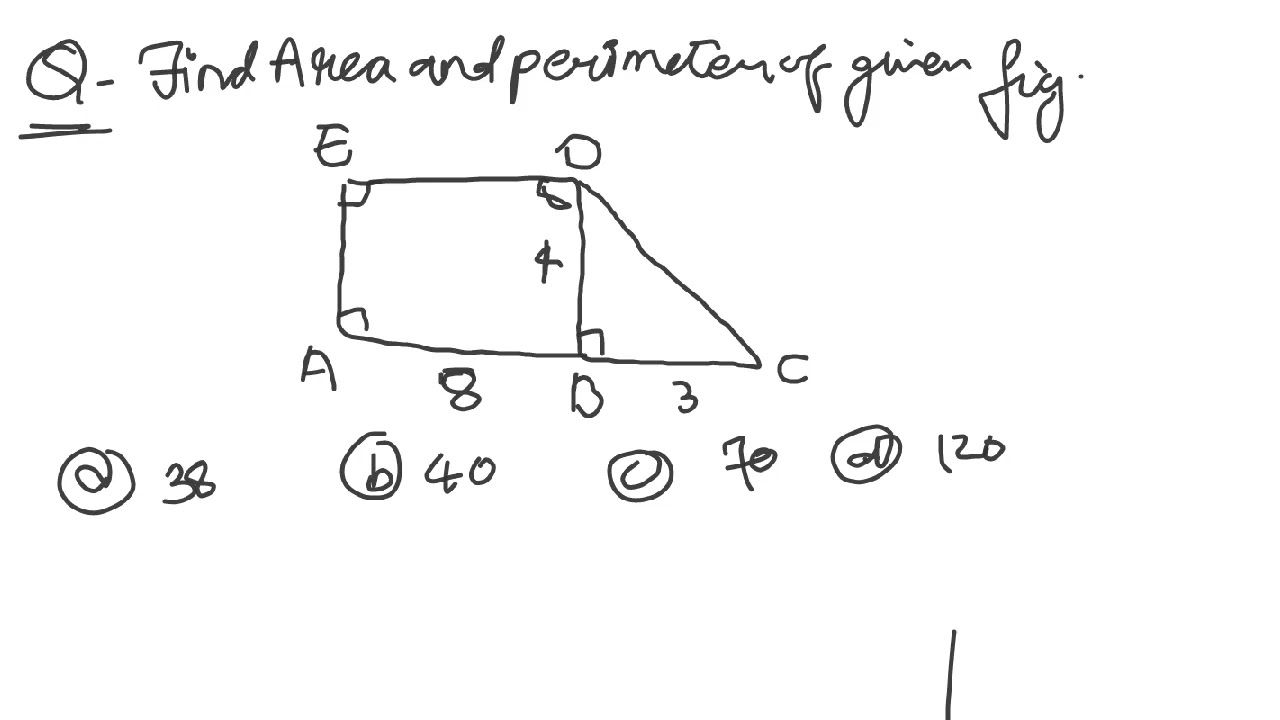 Q- Find Area and perimeter of given fig.
E D
4
A 8 B 3 C
a 38 b 40 c 70 d 120